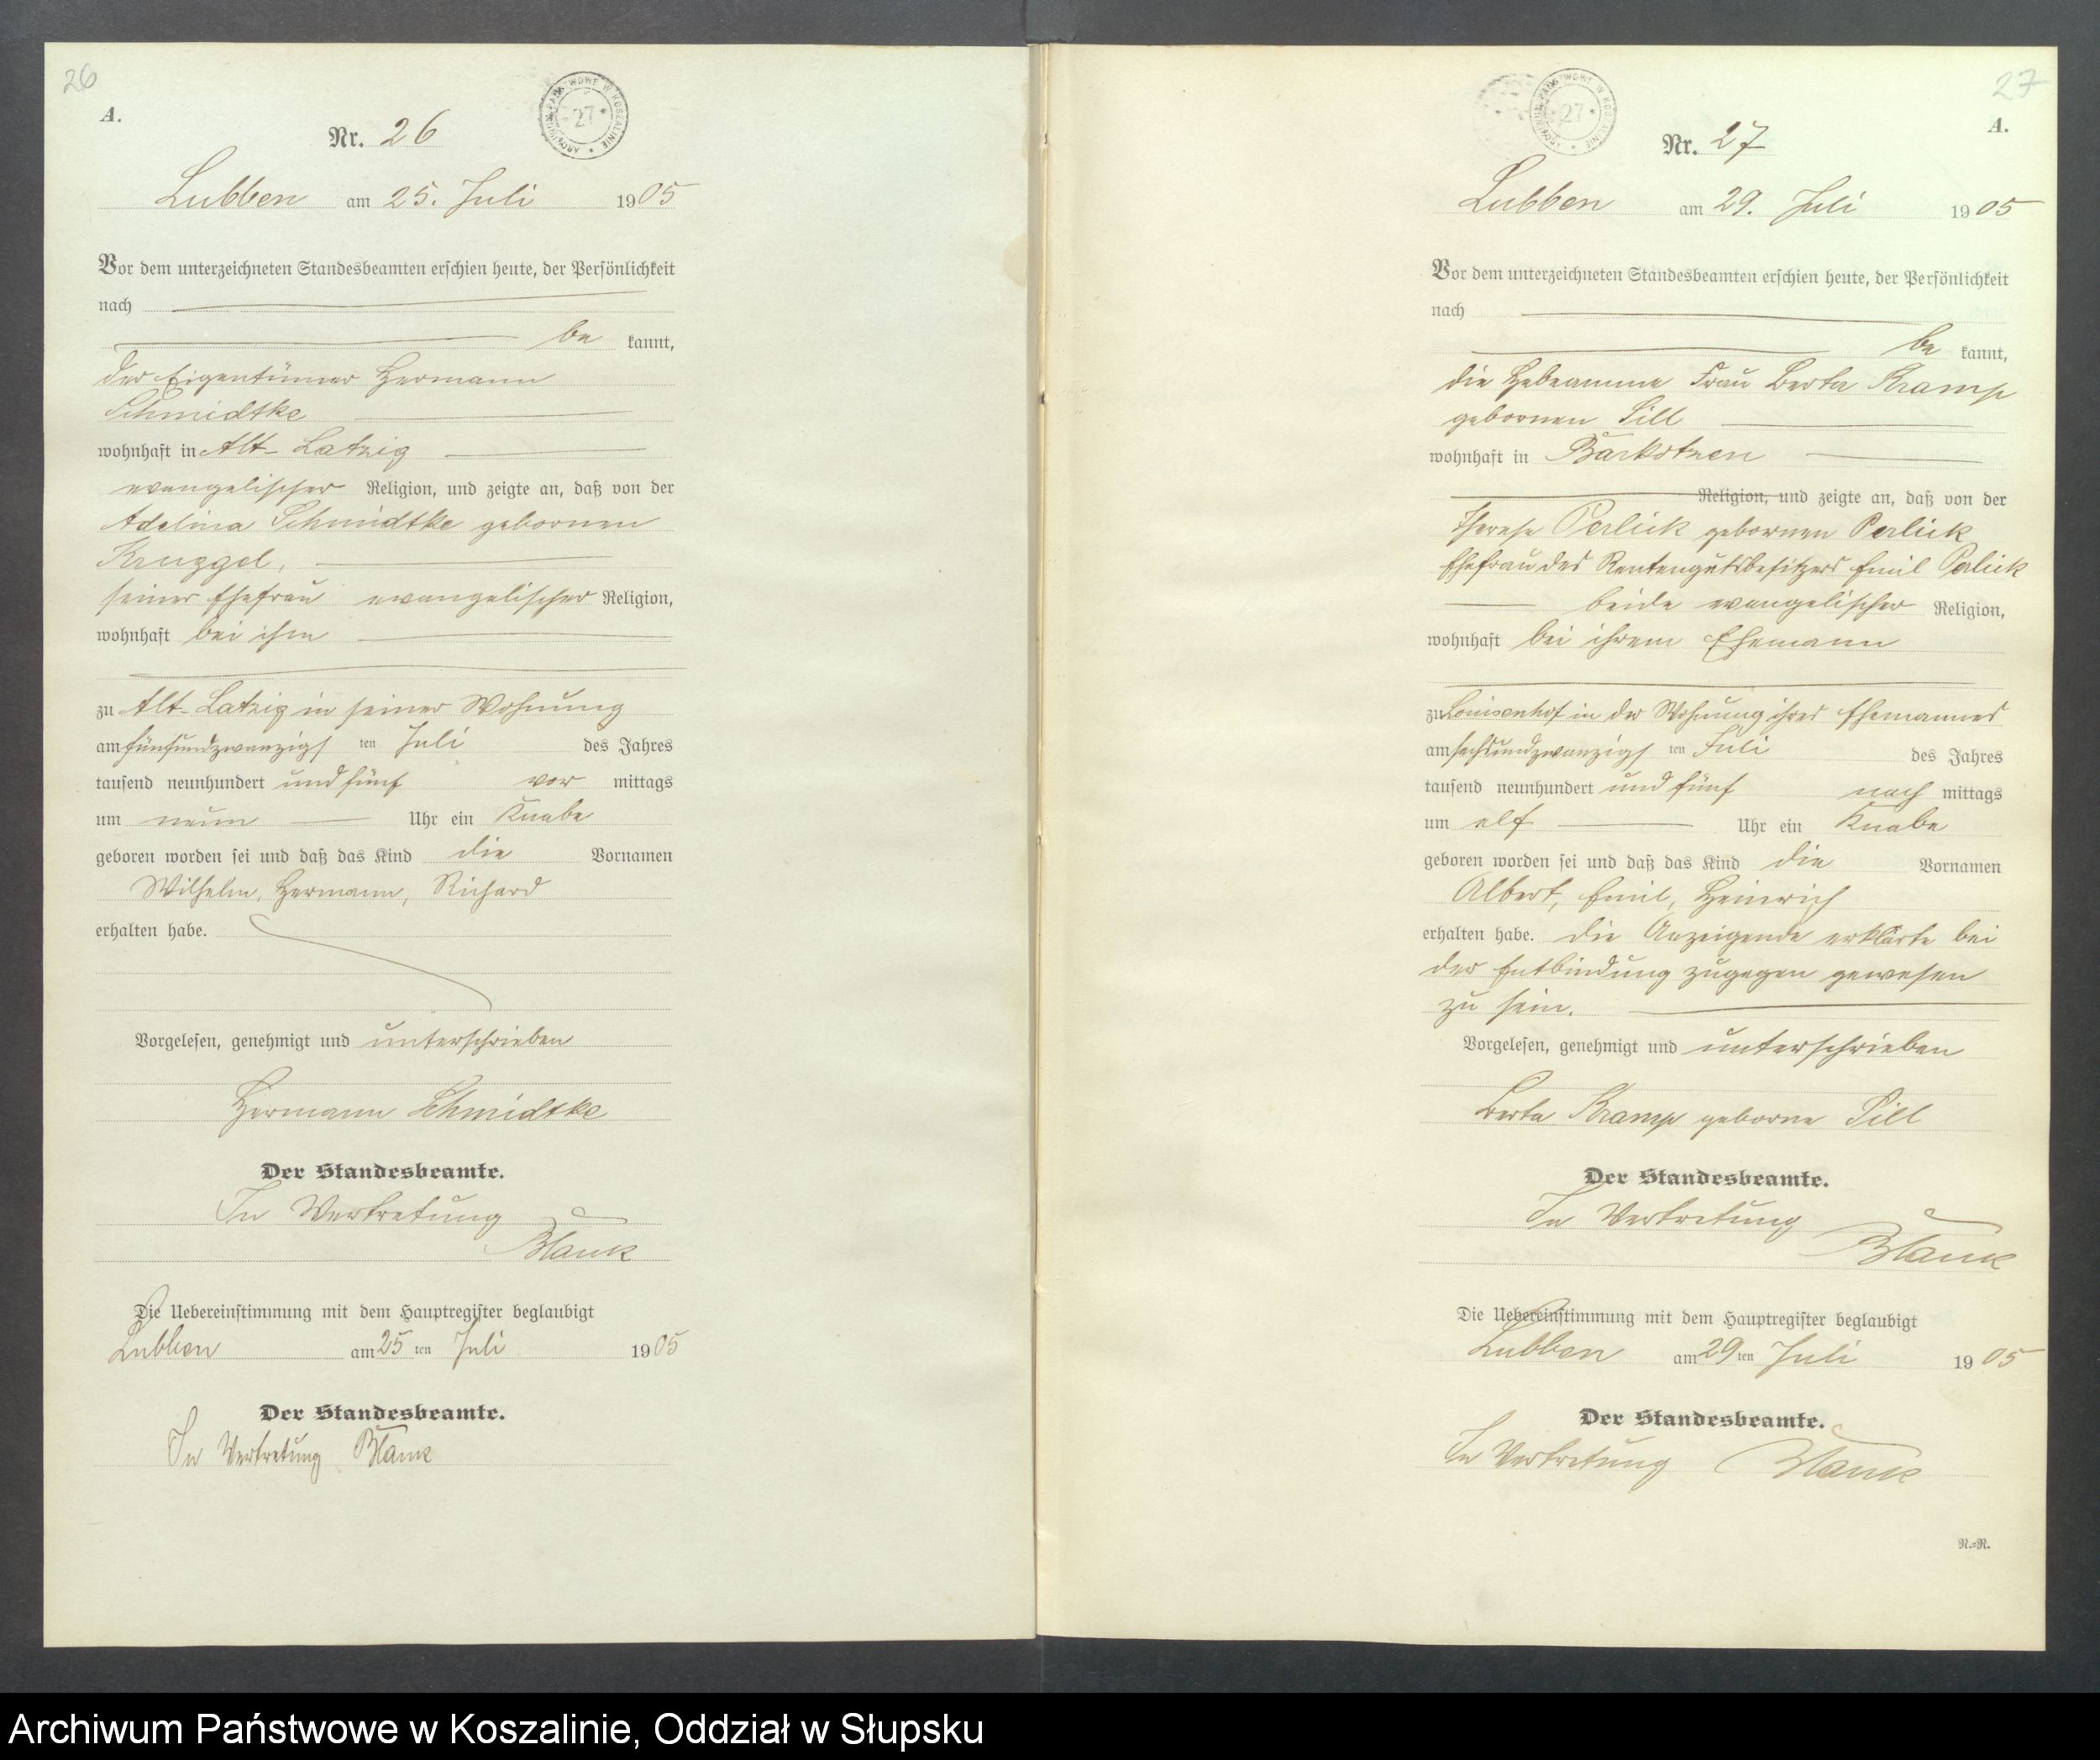 26
A.
Nr. 26
ARCHIWUM PAŃSTWOWE W KOSZALINIE * 27 *
Lubben am 25. Juli 1905
Vor dem unterzeichneten Standesbeamten erschien heute, der Persönlichkeit
nach
be kannt,
der Eigentümer Hermann
Schmidtke
wohnhaft in Alt-Latzig
evangelischer Religion, und zeigte an, daß von der
Adelina Schmidtke gebornen
Kruggel,
seiner Ehefrau evangelischer Religion,
wohnhaft bei ihm
zu Alt-Latzig in seiner Wohnung
am fünfundzwanzigs ten Juli des Jahres
tausend neunhundert und fünf vor mittags
um neun Uhr ein Knabe
geboren worden sei und daß das Kind die Vornamen
Wilhelm, Hermann, Richard
erhalten habe.
Vorgelesen, genehmigt und unterschrieben
Hermann Schmidtke
Der Standesbeamte.
In Vertretung
Blank
Die Uebereinstimmung mit dem Hauptregister beglaubigt
Lubben am 25 ten Juli 1905
Der Standesbeamte.
In Vertretung Blank
27
A.
Nr. 27
ARCHIWUM PAŃSTWOWE W KOSZALINIE * 27 *
Lubben am 29. Juli 1905
Vor dem unterzeichneten Standesbeamten erschien heute, der Persönlichkeit
nach
be kannt,
die Hebeamme Frau Berta Kramp
gebornen Pill
wohnhaft in Barkotzen
Religion, und zeigte an, daß von der
Therese Perlick gebornen Perlick
Ehefrau des Rentengutsbesitzers Emil Perlick
beide evangelischer Religion,
wohnhaft bei ihrem Ehemann
zu Louisenhof in der Wohnung ihres Ehemannes
am sechsundzwanzigs ten Juli des Jahres
tausend neunhundert und fünf nach mittags
um elf Uhr ein Knabe
geboren worden sei und daß das Kind die Vornamen
Albert, Emil, Heinrich
erhalten habe. Die Anzeigende erklärte bei
der Entbindung zugegen gewesen
zu sein.
Vorgelesen, genehmigt und unterschrieben
Berta Kramp geborne Pill
Der Standesbeamte.
In Vertretung
Blank
Die Uebereinstimmung mit dem Hauptregister beglaubigt
Lubben am 29 ten Juli 1905
Der Standesbeamte.
In Vertretung Blank
N.=R.
Archiwum Państwowe w Koszalinie, Oddział w Słupsku